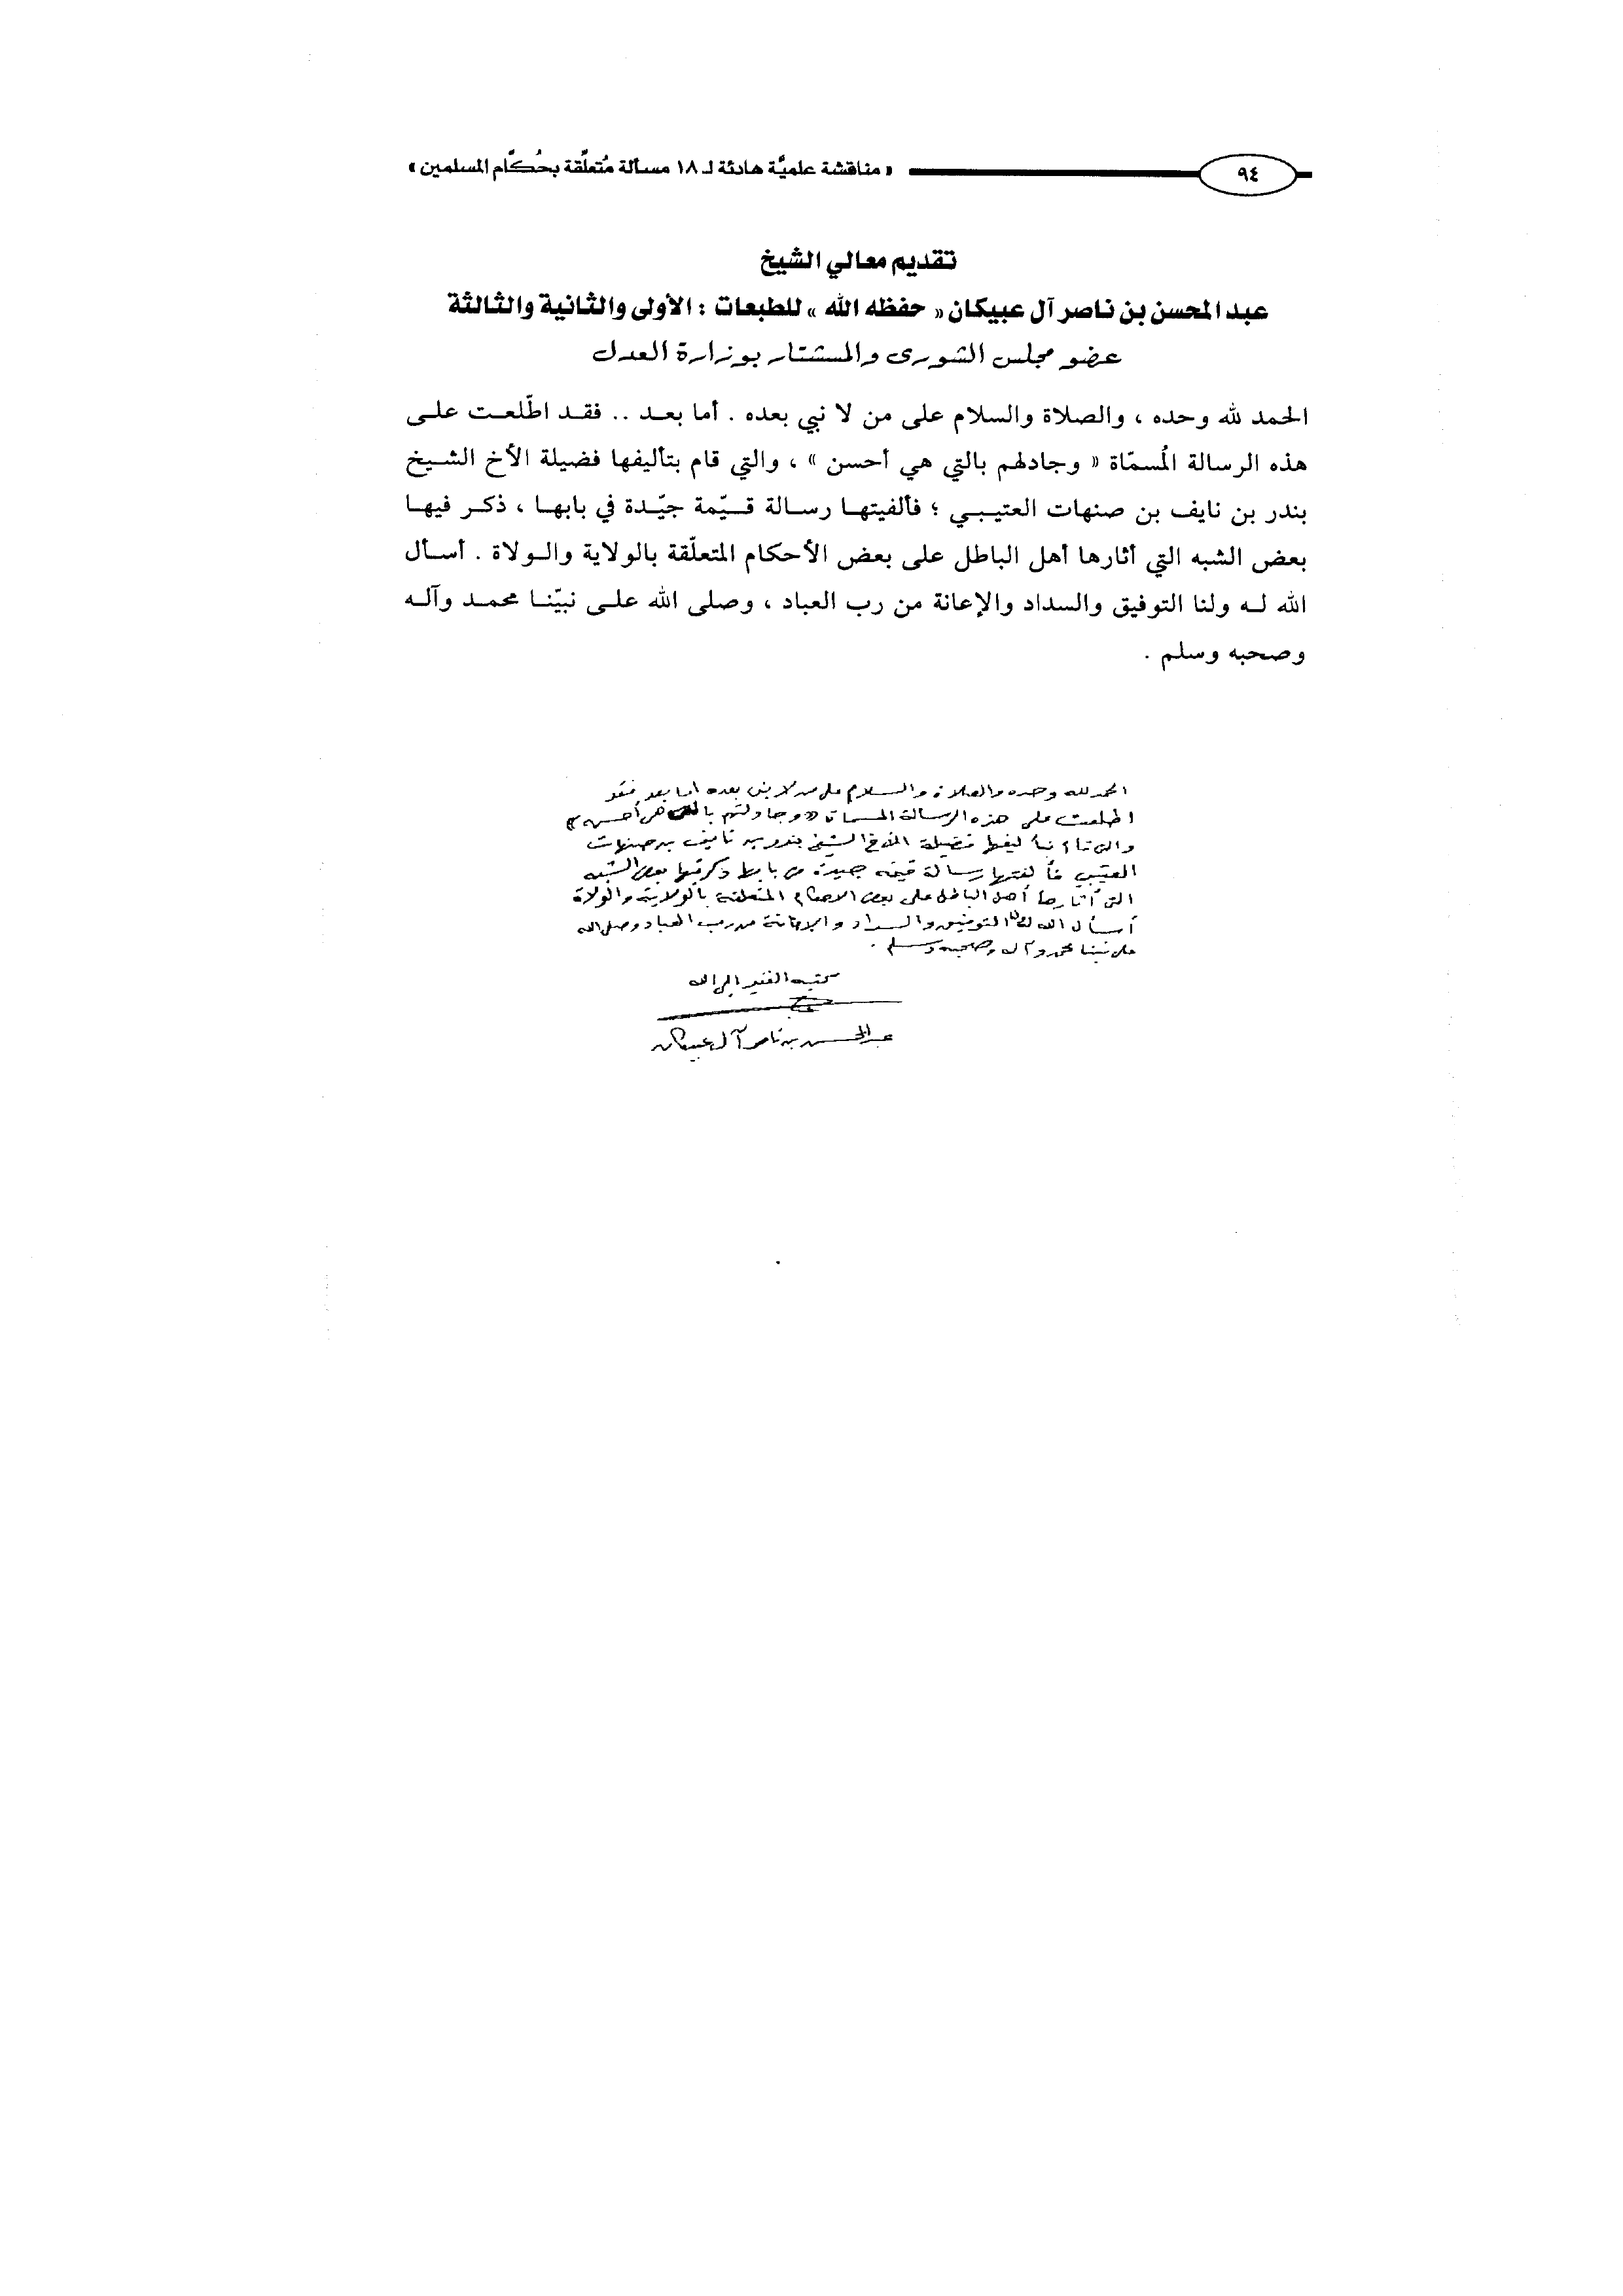 ٩٤ « مناقشة علميَّة هادئة لـ ١٨ مسألة مُتعلِّقة بحُكَّام المسلمين »
تقديم معالي الشيخ
عبد المحسن بن ناصر آل عبيكان « حفظه الله » للطبعات : الأولى والثانية والثالثة
عضو مجلس الشورى والمستشار بوزارة العدل
الحمد لله وحده ، والصلاة والسلام على من لا نبي بعده . أما بعـد .. فقـد اطّلعـت علـى
هذه الرسالة المُسمّاة « وجادلهم بالتي هي أحسن » ، والتي قام بتأليفها فضيلة الأخ الشـيخ
بندر بن نايف بن صنهات العتيـبـي ؛ فألفيتهـا رسـالة قـيّمة جيّـدة في بابهـا ، ذكـر فيهـا
بعض الشبه التي أثارها أهل الباطل على بعض الأحكام المتعلّقة بالولاية والـولاة . أسـأل
الله لـه ولنا التوفيق والسداد والإعانة من رب العباد ، وصلى الله علـى نبيّنـا محمـد وآلـه
وصحبه وسلم .
الحمد لله وحده والصلاة والسلام على من لا نبي بعده أما بعد فقد
اطلعت على هذه الرسالة المسماة « وجادلهم بالتي هي أحسن »
والتي قام بتأليفها فضيلة الأخ الشيخ بندر بن نايف بن صنهات
العتيبي فألفيتها رسالة قيمة جيدة في بابها ذكر فيها بعض الشبه
التي أثارها أهل الباطل على بعض الأحكام المتعلقة بالولاية والولاة
أسأل الله له ولنا التوفيق والسداد والإعانة من رب العباد وصلى الله
على نبينا محمد وآله وصحبه وسلم .
كتبه الفقير إلى الله
عبد المحسن بن ناصر آل عبيكان